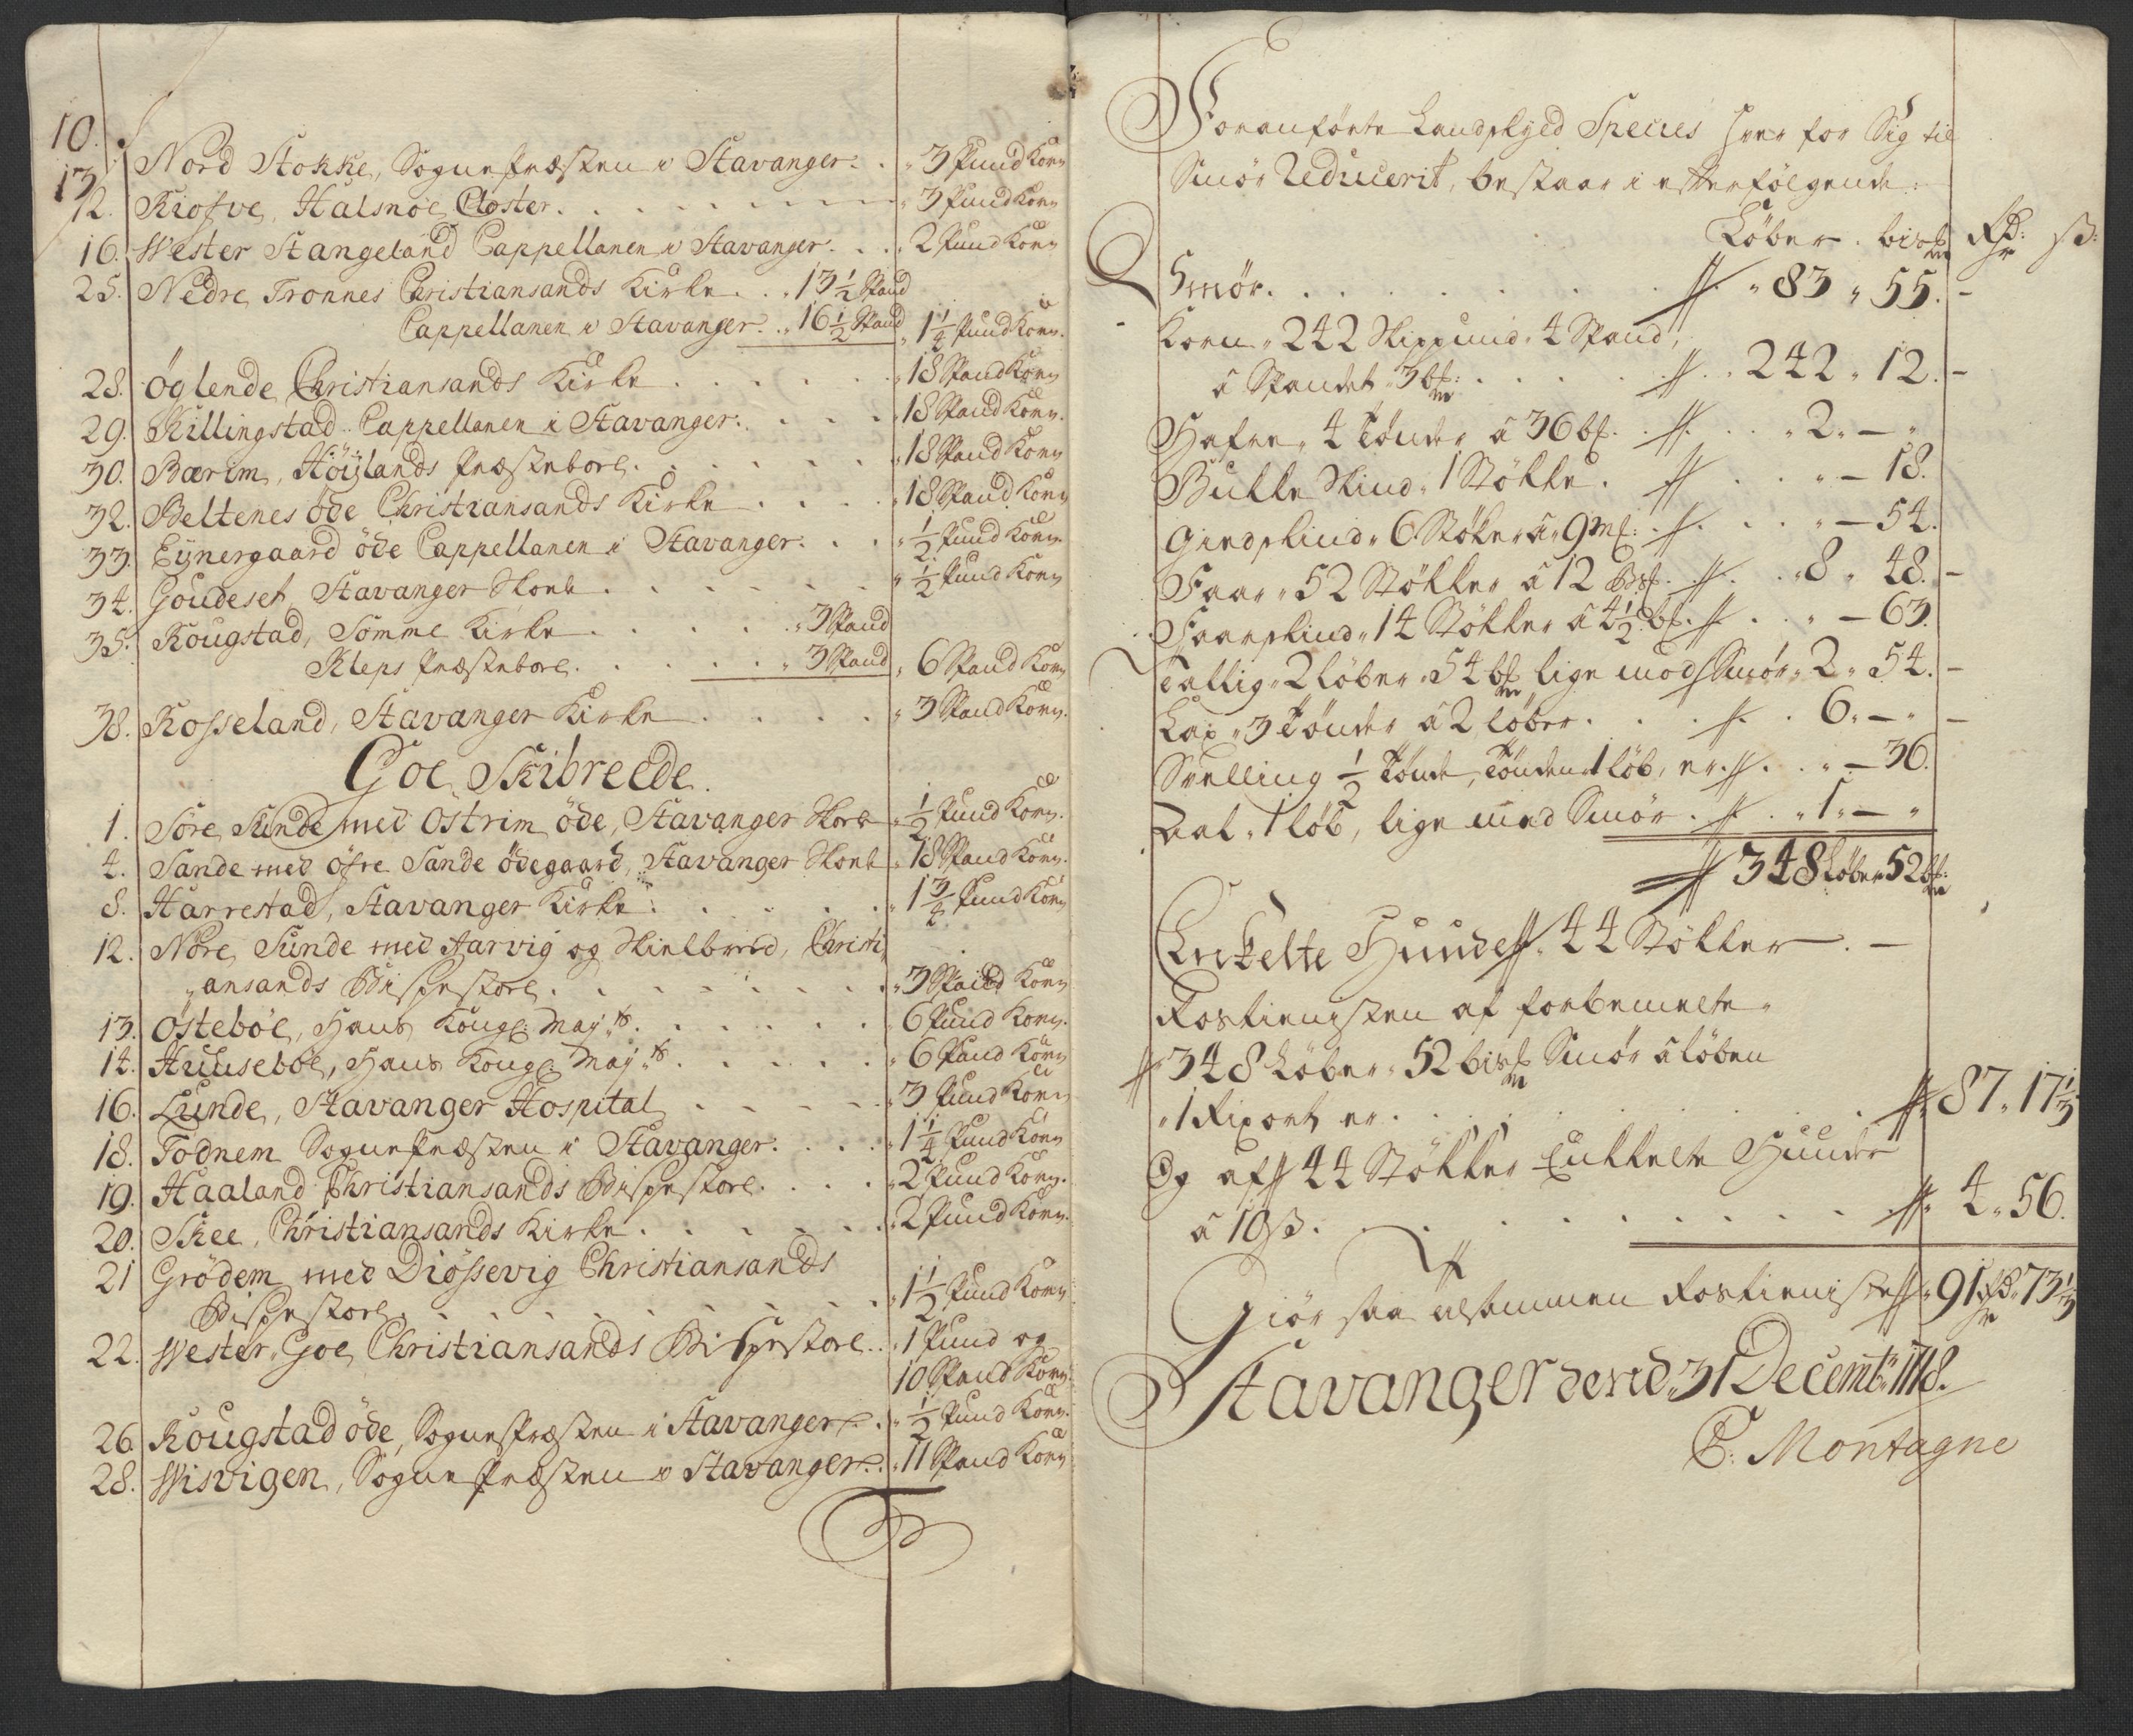 10.
13 Nord Stokke, Sognepræsten i Stavanger. . 3 Pund Korn
12. Kiosve, Halsnöe Closter. . . . . . . . . 3 Pund Korn
16. Wester Stangeland Cappellanen i Stavanger. . . 2 Pund Korn
25. Nedre Tronnes Christiansands Kirke. . . 13 1/2 Spand
Cappellanen i Stavanger. . 16 1/2 Spand 1 1/4 Pund Korn.
28. Öglende Christiansands Kirke . . . . . . 18 Spand Korn
29. Killingstad Cappellanen i Stavanger. . . . . 18 Spand Korn.
30. Bærim, Höÿlands Præstebore. . . . . . . 18 Spand Korn
32. Beltenes öde Christiansands Kirke . . . . 18 Spand Korn
33. Eÿnergaard öde Cappellanen i Stavanger. . . 1/2 Pund Korn
34. Goudeset, Stavanger Skole . . . . . . . 1/2 Pund Korn
35. Rougstad, Somme Kirke . . . . . 3 Spand
Kleps Præstebore. . . . . . 3 Spand 6 Spand Korn
38. Rosseland, Stavanger Kirke . . . . . 3 Spand Korn.
Goe Skibreede.
1. Söre Sunde med Östrim öde, Stavanger Skole 1/2 Pund Korn.
4. Sande med öfre Sande ödegaard, Stavanger Skole 18 Spand Korn.
8. Harrestad, Stavanger Kirke. . . . . . 1 3/4 Pund Korn
12. Nore Sunde med Aarvig og Skielbred, Christi,
,ansands Bispestore. . . . . . . . . 3 Spand Korn
13. Östeböe, Hans Kongl: Maÿ:ts. . . . . . 6 Pund Korn.
14. Huuseböe, Hans Kongl: Maÿ:ts. . . . . . 6 Pund Korn
16. Lunde, Stavanger Hospital . . . . . 3 Pund Korn
18. Todnem Sognepræsten i Stavanger. . . . 1 1/4 Pund Korn
19. Haaland Christiansands Bispestore. . . . 2 Pund Korn.
20. Skee, Christiansands Kirke . . . . . . 2 Pund Korn.
21 Grödem med Diössevig Christiansands
Bispestore. . . . . . . . . . 1 1/2 Pund Korn
22. Wester Goe Christiansands Bispestore. . 1 Pund og
10 Spand Korn.
26. Rougstad öde, Sognepræsten i Stavanger. . 1/2 Pund Korn.
28. Wisvigen, Sognepræsten i Stavanger. . 11 Spand Korn
Foranförte Landskyld Species hver for Sig til
Smör Reducerit, bestaar i efterfölgende:
Löber. bismr℔ Rdr: ß:
Smör. . . . . . . . . . # 83 " 55. -
Korn " 242 Skippund " 4 Spand,
â Spandet 3 b℔: . . . . . # . . 242 " 12. -
Hafre " 4 Tönder â 36 b℔. . # . . . 2. — "
Bukke Skind " 1 Stökke. # . . . " — 18.
Giedskind " 6 Stöker â 9 m℔: # . . . " — 54.
Faar " 52 Stökker â 12 Bis℔. # . . . 8 " 48. -
Faarskind " 14 Stökker â 4 1/2 b℔. # . . . " — 63.
Tallig " 2 löber " 54 b℔ lige mod Smör " 2 " 54. -
Lax " 3 Tönder â 2 löber. . . . # . . 6. — " -
Sælling 1/2 Tönde, Tönden 1 löb, er # . . . — 36.
Aal " 1 löb, lige med Smör. # . . " 1. — "
# 348 Löber 52 b℔:
Enkelte Huude # 44 Stökker. —
Rostienisten af forbemelte
# 348 Löber " 52 bis℔ Smör â löben
" 1 Rixort er . . . . . . . # 87 " 17 1/3
Og af # 44 Stökker Enkelte Huuder
â 10 ß. . . . . . . . . . # 4 " 56.
Giör saa alsammen Rostieniste # 91 Rdr " 73 1/3
Stavanger dend 31 Decembr: 1718.
C: Montagne